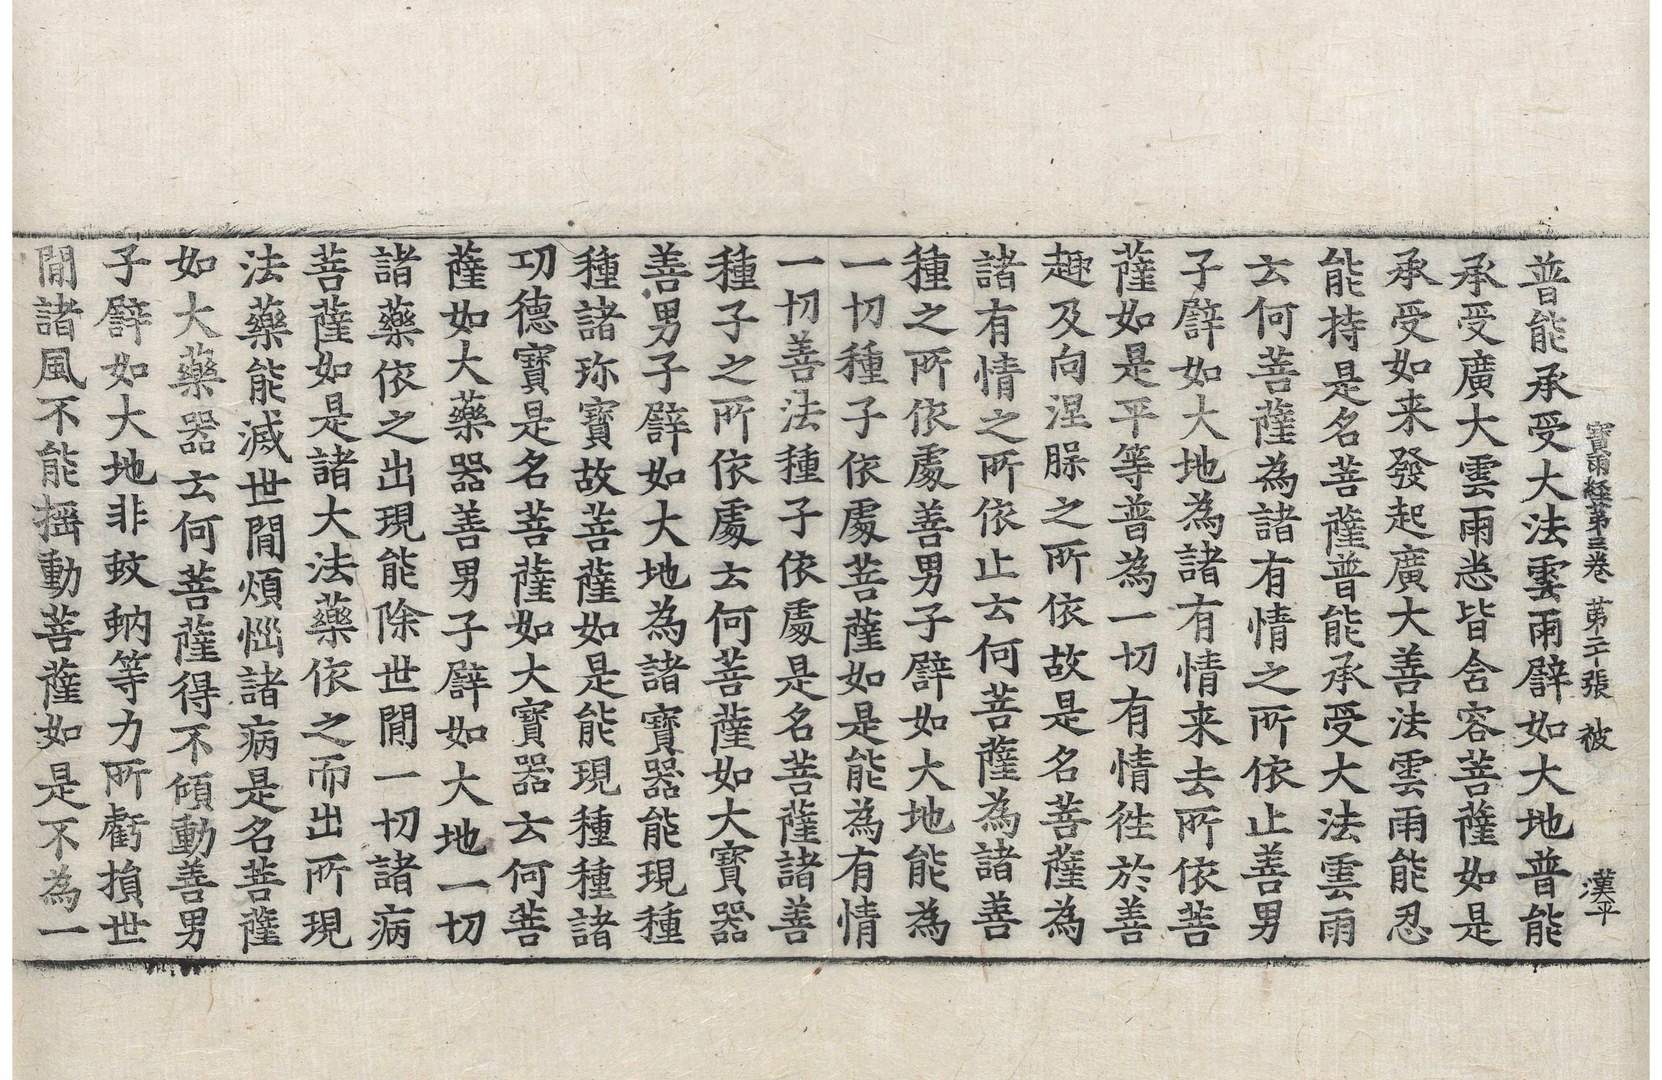 寶雨経第三卷 第二十張 被 漢平
普能承受大法雲雨譬如大地普能
承受廣大雲雨悉皆含容菩薩如是
承受如来發起廣大善法雲雨能忍
能持是名菩薩普能承受大法雲雨
云何菩薩為諸有情之所依止善男
子譬如大地為諸有情来去所依菩
薩如是平等普為一切有情徃於善
趣及向涅槃之所依故是名菩薩為
諸有情之所依止云何菩薩為諸善
種之所依處善男子譬如大地能為
一切種子依處菩薩如是能為有情
一切善法種子依處是名菩薩諸善
種子之所依處云何菩薩如大寶器
善男子譬如大地為諸寶器能現種
種諸珎寶故菩薩如是能現種種諸
功德寶是名菩薩如大寶器云何菩
薩如大藥器善男子譬如大地一切
諸藥依之出現能除世閒一切諸病
菩薩如是諸大法藥依之而出所現
法藥能滅世閒煩惱諸病是名菩薩
如大藥器云何菩薩得不傾動善男
子譬如大地非蚊蚋等力所虧損世
閒諸風不能揺動菩薩如是不為一